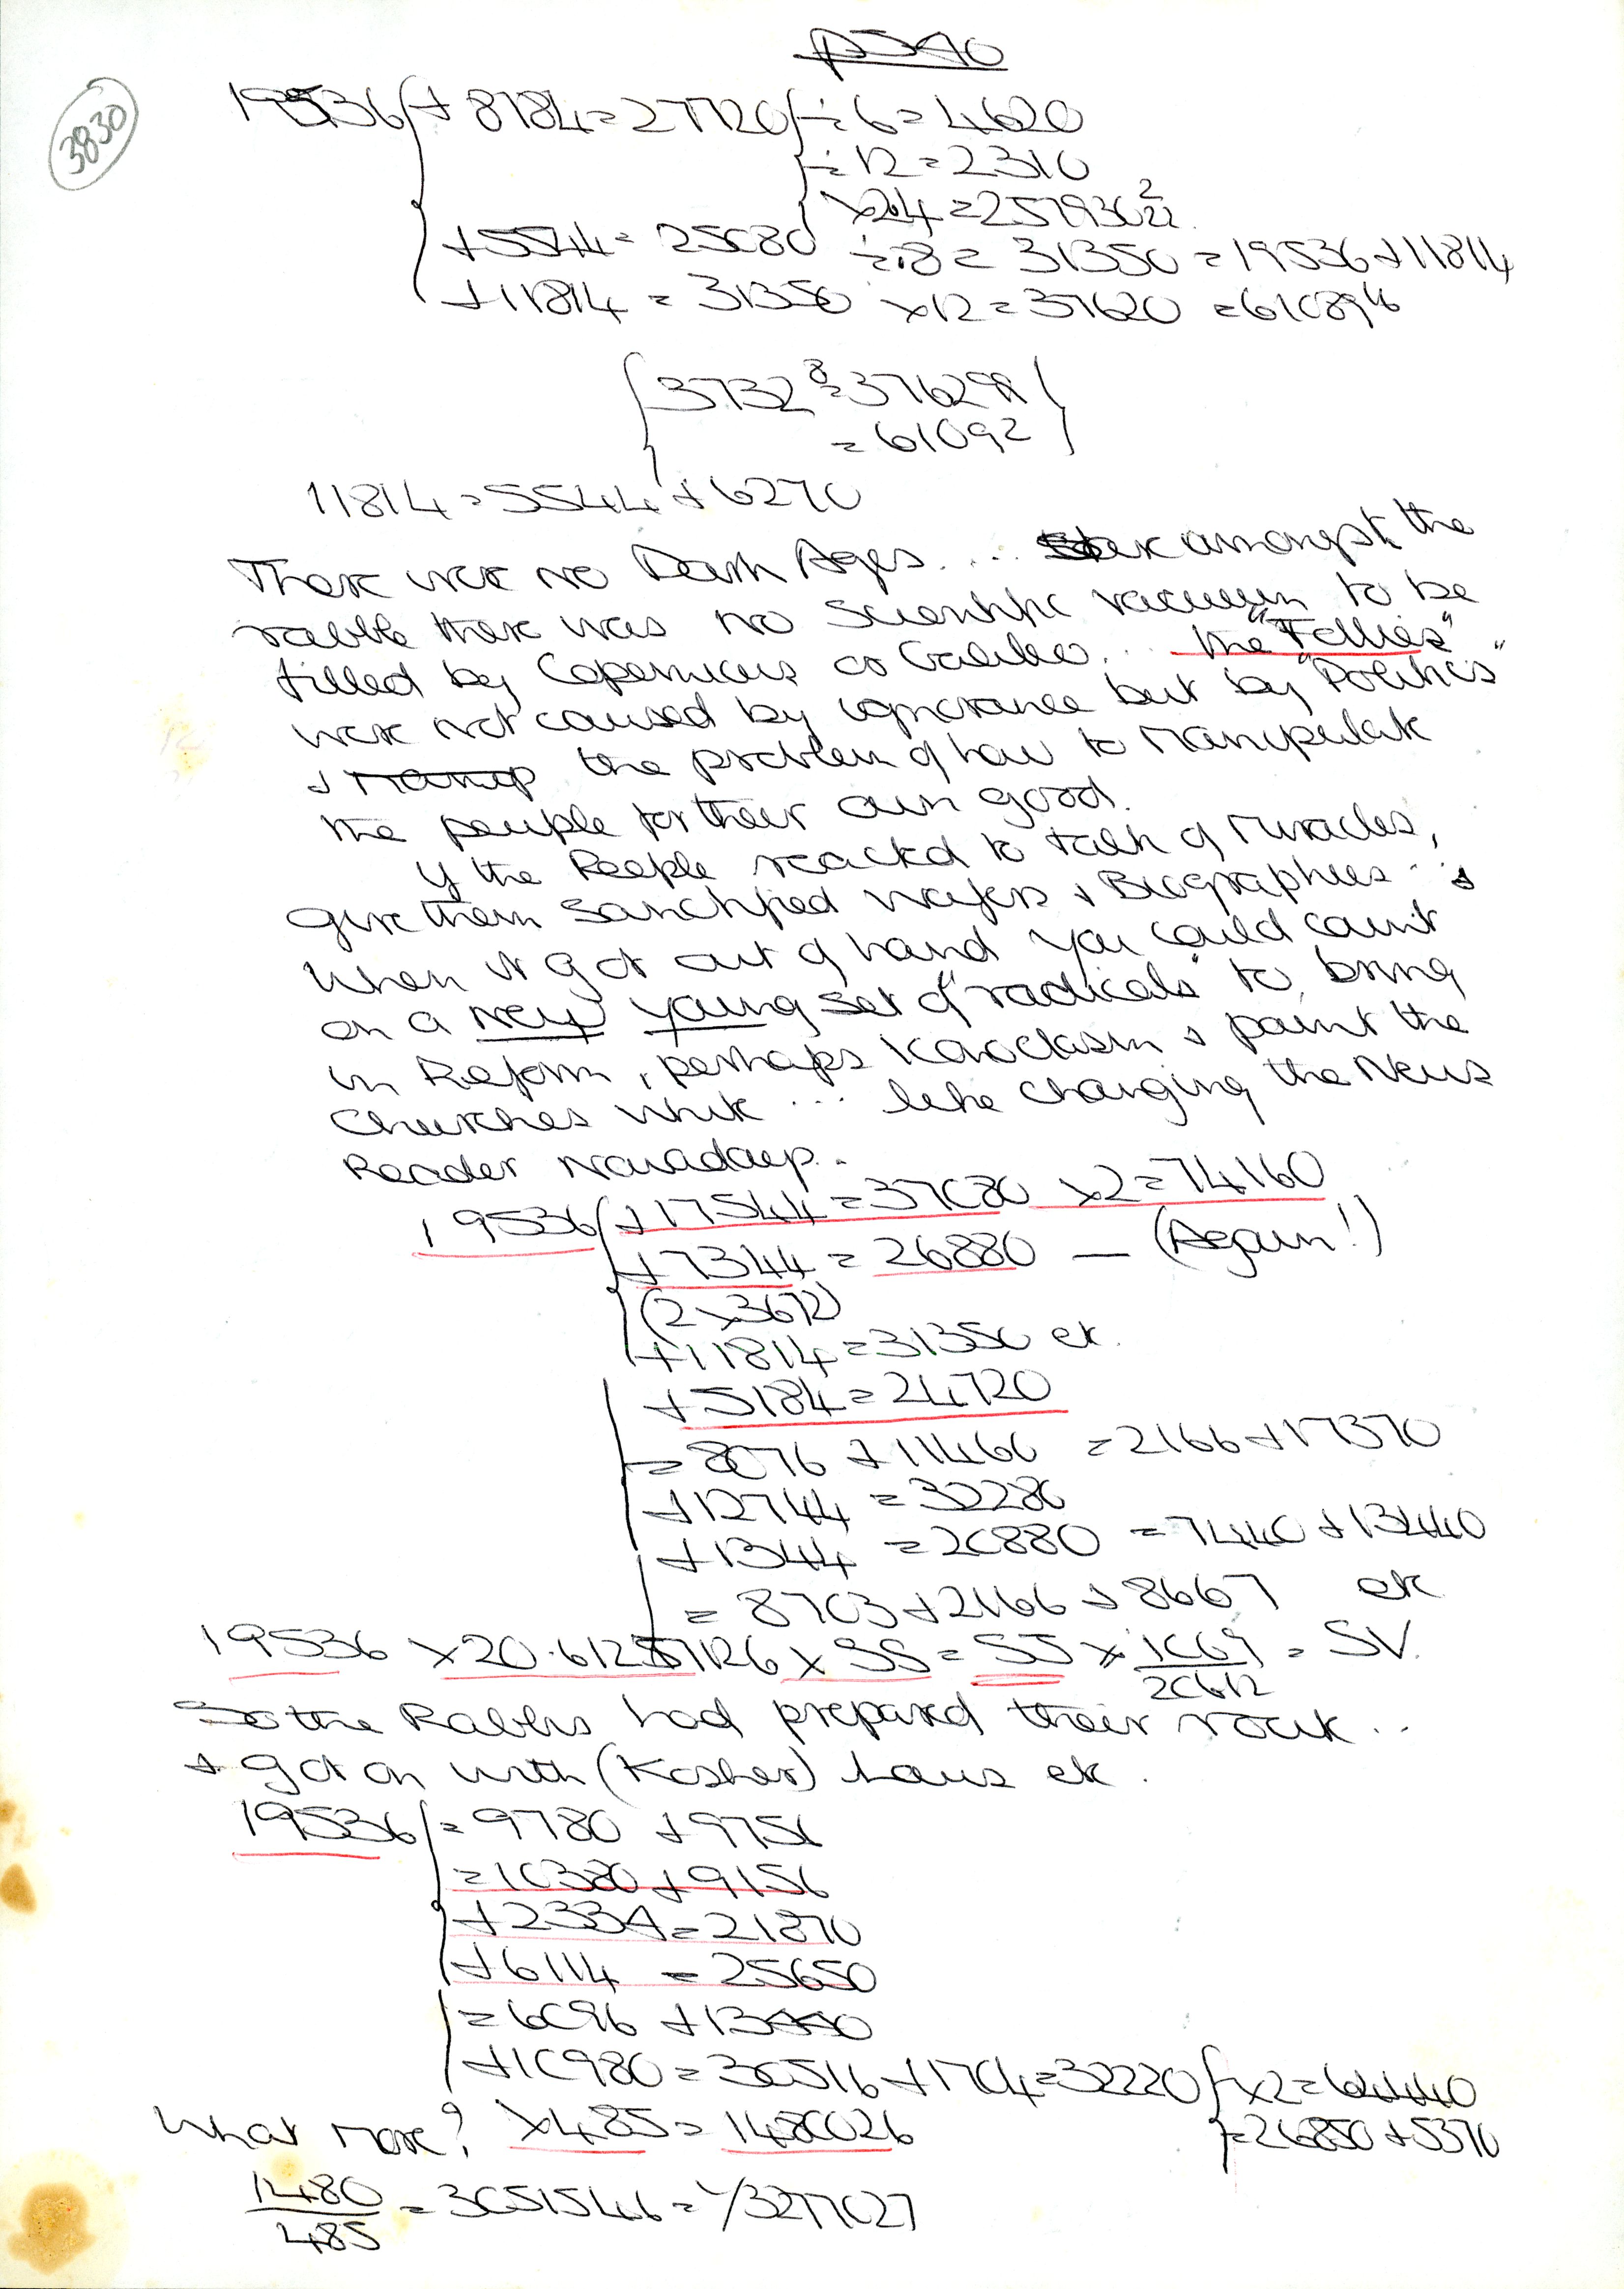 p540
3830
19536 + 8184 = 27720 ÷ 6 = 4620
÷ 12 = 2310
+ 5544 = 25080 ÷ .8 = 31350 = 19536 + 11814
+ 11814 = 31350 × 12 = 37620 = 610896
37328 = 376298
= 61092
11814 = 5544 + 6270
There were no Dark Ages ... amongst the
rabble there was no scientific vacuum to be
filled by Copernicus or Galileo ... the "Follies"
were not caused by ignorance but by "Politics"
+ the problem of how to Manipulate
the people for their own good.
If the People reacted to talk of Miracles,
give them sanctified wafers + Biographies .. +
when it got out of hand you could count
on a new young set of "radicals" to bring
in Reform, perhaps Iconoclasm + paint the
Churches white ... like changing the News
Reader Nowadays.
19536 + 17544 = 37080 × 2 = 74160
+ 7344 = 26880 — (Again!)
(2 × 3672)
+ 11814 = 31350 etc.
+ 5184 = 24720
= 8076 + 11460 = 2166 + 17370
+ 12744 = 32280
+ 1344 = 20880 = 7440 + 13440
= 8703 + 2166 + 8667 etc
19536 × 20.61287126 × SS = SJ × 1069/20612 = SV.
So the Rabbis had prepared their route ..
+ got on with (Kosher) Laws etc.
19536 = 9780 + 9756
= 10380 + 9156
+ 2334 = 21870
+ 6114 = 25650
= 6096 + 13440
+ 10980 = 30516 + 1704 = 32220 × 2 = 64440
= 26850 + 5370
What More? × 485 = 1480026
1480/485 = 3051546 = 1/3277027